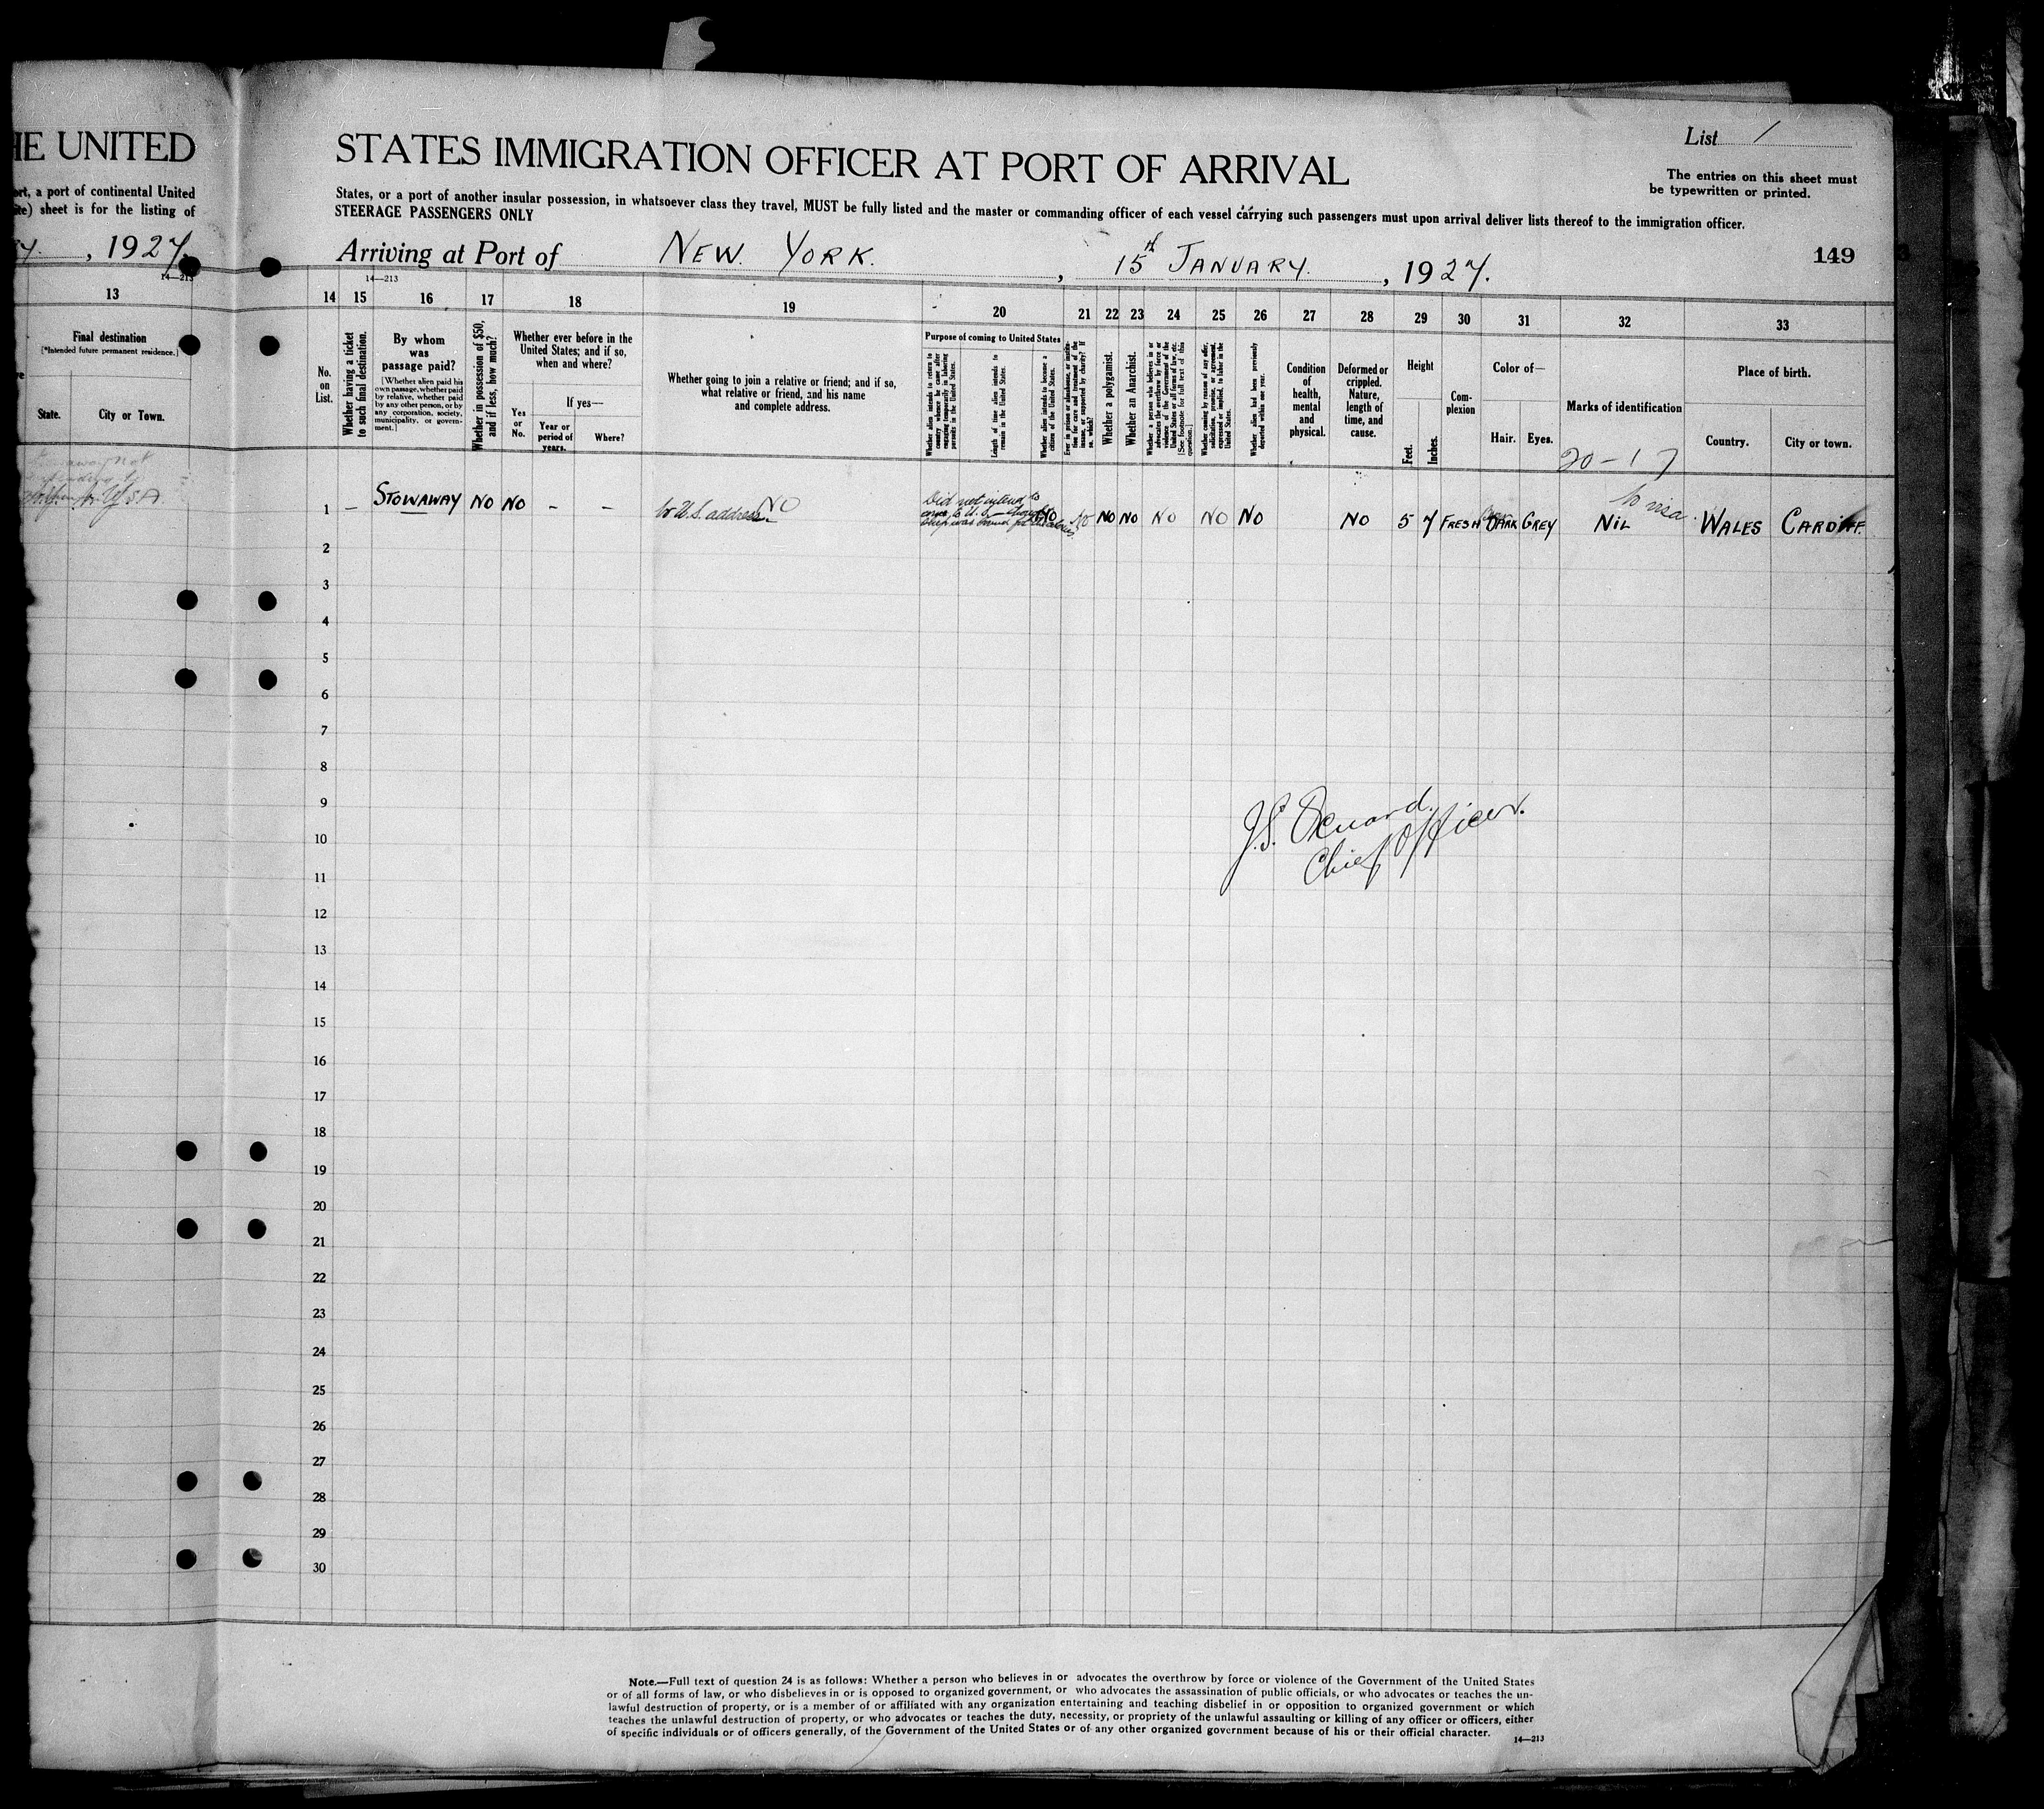 HE UNITED
STATES IMMIGRATION OFFICER AT PORT OF ARRIVAL
List 1
The entries on this sheet must
be typewritten or printed.
ort, a port of continental United
ite) sheet is for the listing of
States, or a port of another insular possession, in whatsoever class they travel, MUST be fully listed and the master or commanding officer of each vessel carrying such passengers must upon arrival deliver lists thereof to the immigration officer.
STEERAGE PASSENGERS ONLY
, 1927.
Arriving at Port of NEW YORK. , 15th JANUARY. , 1927.
149
14—213
14—213
13 14 15 16 17 18 19 20 21 22 23 24 25 26 27 28 29 30 31 32 33
Final destination
[*Intended future permanent residence.]
State.
City or Town.
No.
on
List.
Whether having a ticket
to such final destination.
By whom
was
passage paid?
[Whether alien paid his
own passage, whether paid
by relative, whether paid
by any other person, or by
any corporation, society,
municipality, or govern-
ment.]
Whether in possession of $50,
and if less, how much?
Whether ever before in the
United States; and if so,
when and where?
Yes
or
No.
If yes—
Year or
period of
years.
Where?
Whether going to join a relative or friend; and if so,
what relative or friend, and his name
and complete address.
Purpose of coming to United States
Whether alien intends to return to
country whence he came after
engaging temporarily in laboring
pursuits in the United States.
Length of time alien intends to
remain in the United States.
Whether alien intends to become a
citizen of the United States.
Ever in prison or almshouse, or institu-
tion for care and treatment of the
insane, or supported by charity? If
so, which?
Whether a polygamist.
Whether an Anarchist.
Whether a person who believes in or
advocates the overthrow by force or
violence of the Government of the
United States or all forms of law, etc.
[See footnote for full text of this
question.]
Whether coming by reason of any offer,
solicitation, promise, or agreement,
expressed or implied, to labor in the
United States.
Whether alien had been previously
deported within one year.
Condition
of
health,
mental
and
physical.
Deformed or
crippled.
Nature,
length of
time, and
cause.
Height
Feet.
Inches.
Com-
plexion
Color of—
Hair.
Eyes.
Marks of identification
20-17
Place of birth.
Country.
City or town.
not
USA
1 – STOWAWAY NO NO – – No U.S. address NO
Did not intend to
come to U.S. – thought
ship was bound for
NO No NO NO NO NO NO NO 5 7 FRESH DARK GREY
No visa
NIL WALES CARDIFF.
2
3
4
5
6
7
8
9
10
11
12
13
14
15
16
17
18
19
20
21
22
23
24
25
26
27
28
29
30
J.S.
Chief Officer.
Note.—Full text of question 24 is as follows: Whether a person who believes in or advocates the overthrow by force or violence of the Government of the United States
or of all forms of law, or who disbelieves in or is opposed to organized government, or who advocates the assassination of public officials, or who advocates or teaches the un-
lawful destruction of property, or is a member of or affiliated with any organization entertaining and teaching disbelief in or opposition to organized government or which
teaches the unlawful destruction of property, or who advocates or teaches the duty, necessity, or propriety of the unlawful assaulting or killing of any officer or officers, either
of specific individuals or of officers generally, of the Government of the United States or of any other organized government because of his or their official character.
14—213